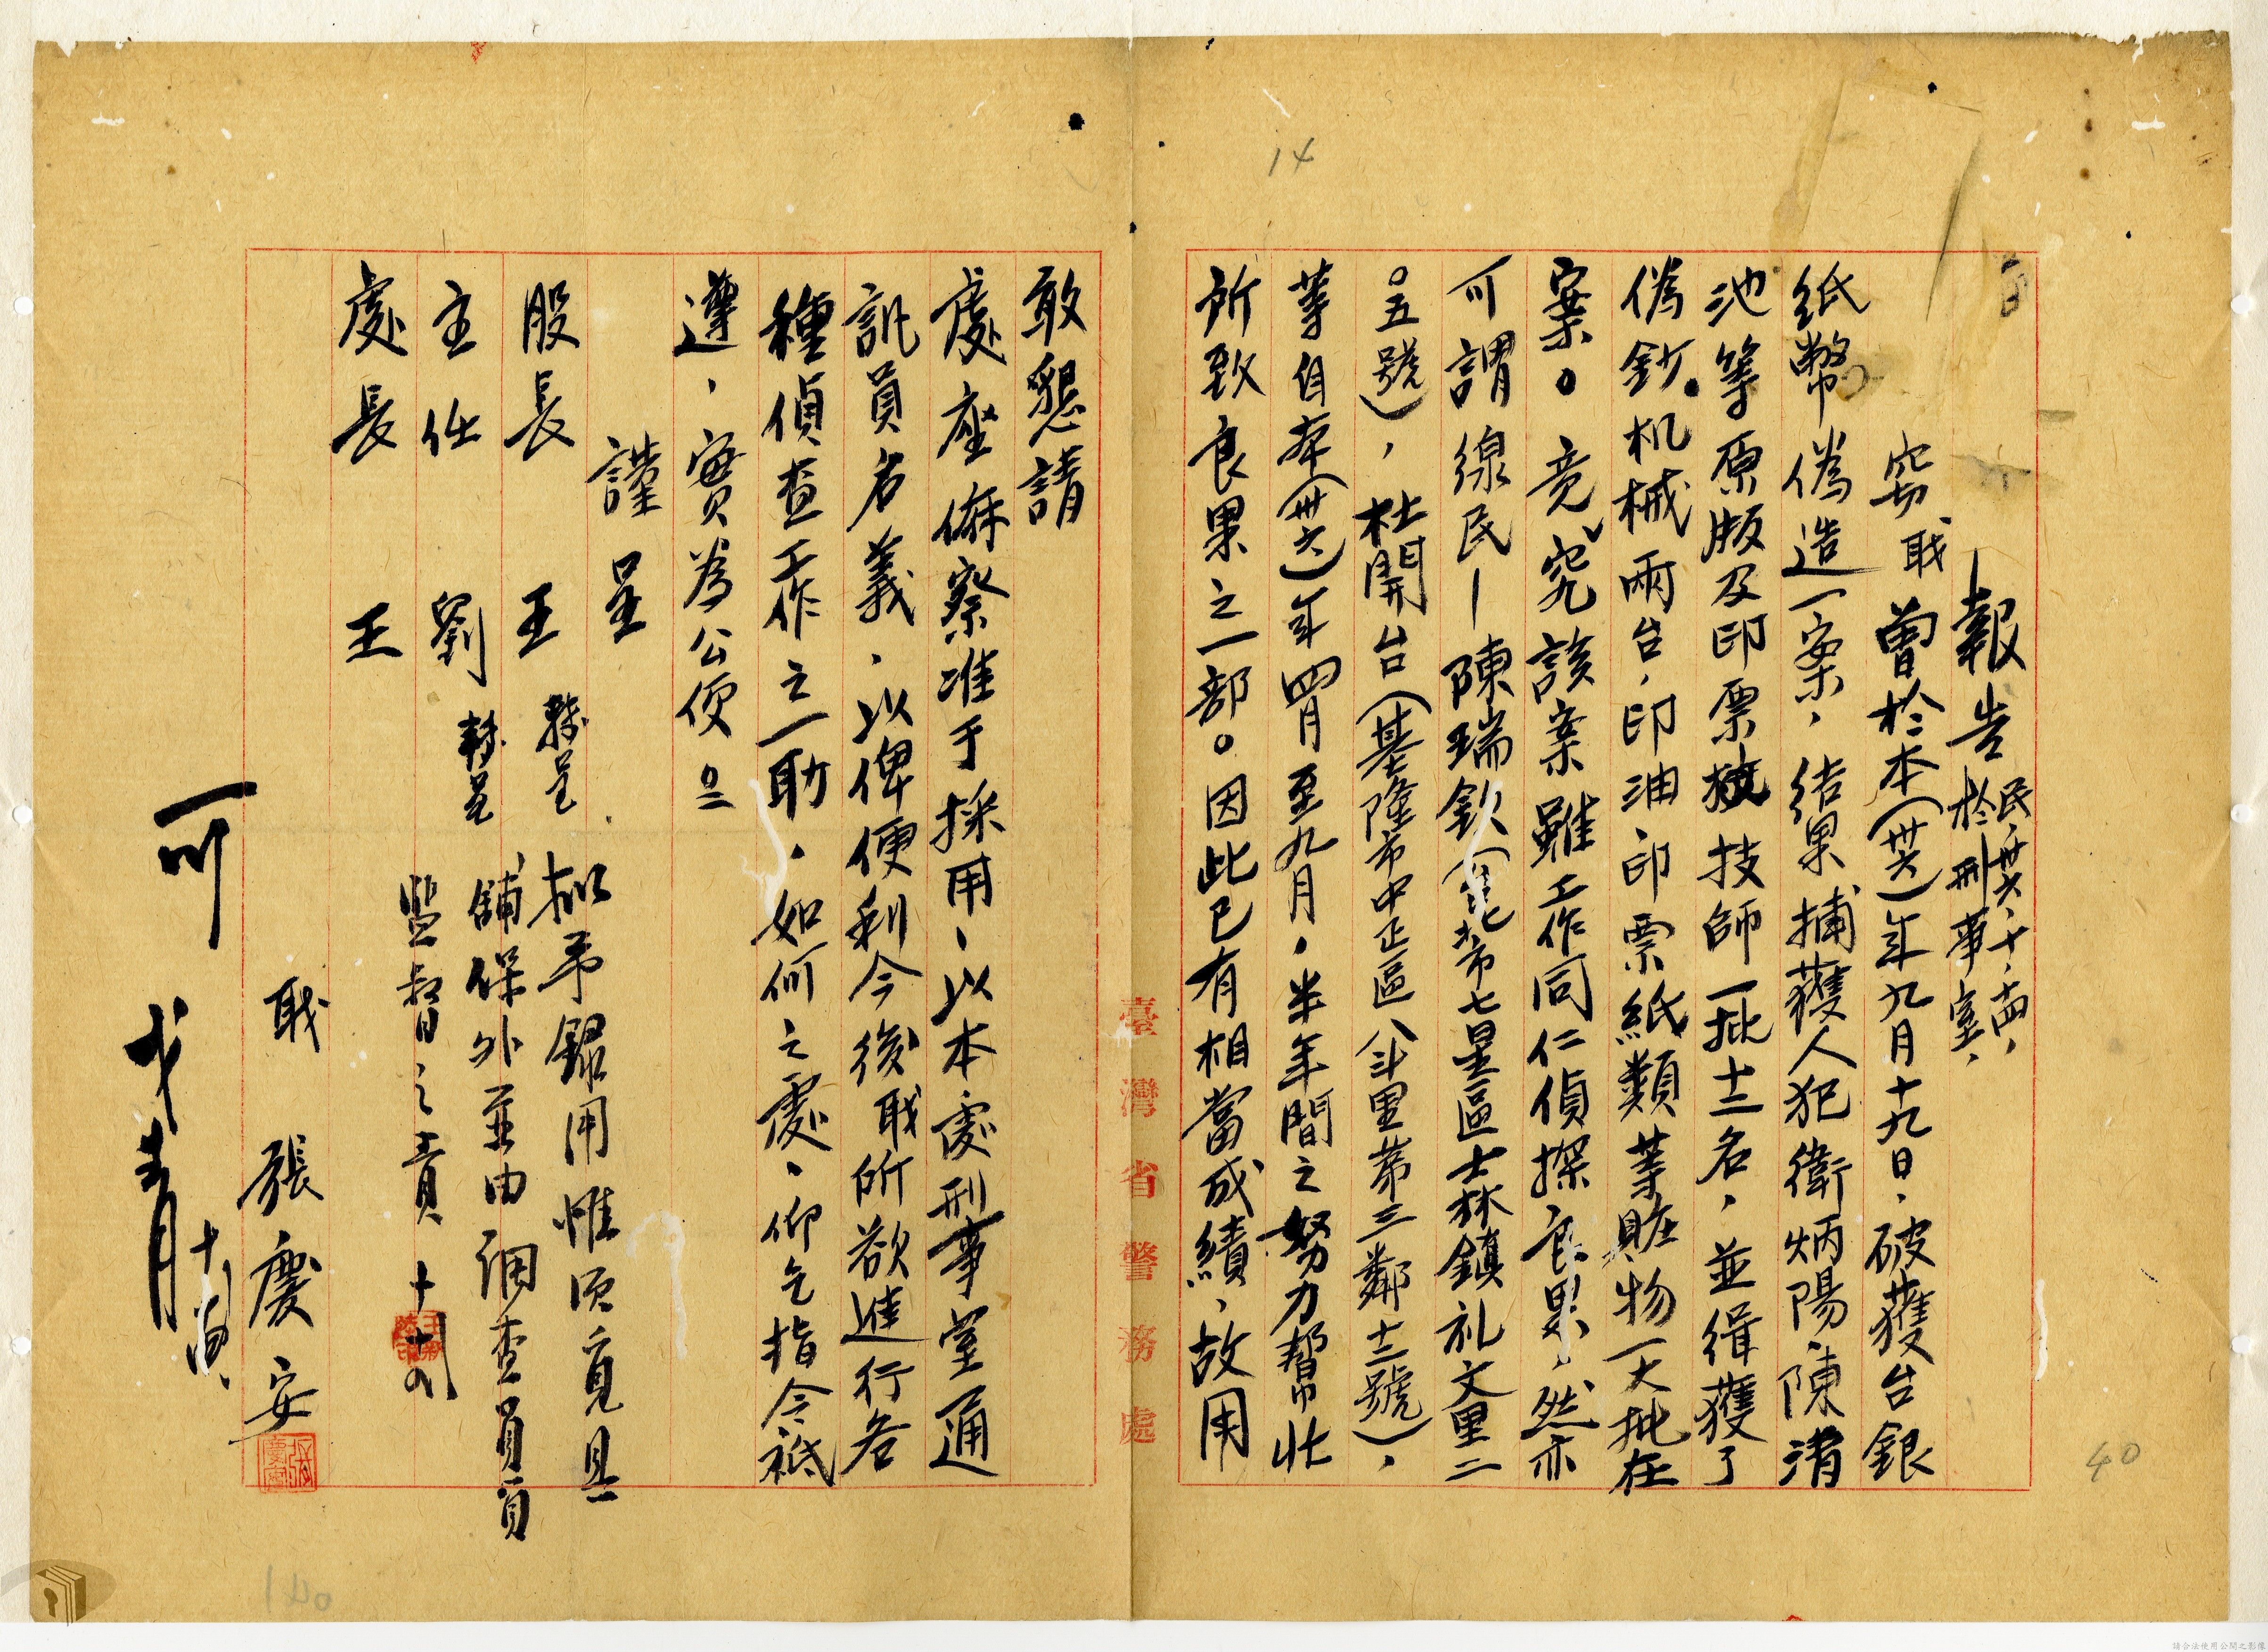 報告 民卅六、十、十四、
於刑事室、
竊職曾於本(卅六)年九月十九日、破獲台銀
紙幣偽造一案、結果捕獲人犯衛炳陽、陳清
池等原版及印票技師一批十二名、並緝獲了
偽鈔机械兩台、印油、印票紙類等賍物一大批在
案。竟究該案雖工作同仁偵探良果、然亦
可謂線民—陳瑞欽(台北市七星區士林鎮礼文里二
〇五號)、杜開台(基隆市中正區八斗里第三鄰十二號)、
等自本(卅六)年四月至九月、半年間之努力幫忙
所致良果之一部。因此已有相當成績、故用
敢懇請
處座俯察准于採用、以本處刑事室通
訊員名義、以俾便利今後職所欲進行各
種偵查工作之一助、如何之處、仰乞指令祗
遵、實為公便。
謹呈
股長 王 轉呈
擬予錄用惟須覓具
主任 劉 轉呈
舖保外並由調查員負
監督之責 十、十四
處長 王
職 張慶安
可
十月
臺灣省警務處
14
40
140
請合法使用公開之影像